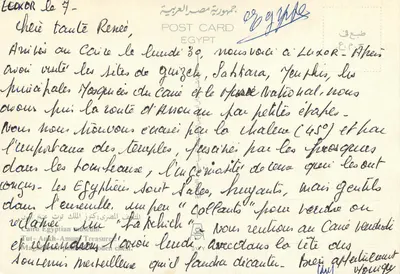 LOUXOR le 7-
جمهورية مصر العربية
POST CARD
EGYPT
egypte
Chère tante Renée,
Arrivés au Caire le lundi 30, nous voici à LUXOR - Après
avoir visité les sites de Guizeh, Sakkara, Memphis, les
principales Mosquées du Caire et le Musée National, nous
avons pris la route d'Assouan par petites étapes.
Nous nous trouvons écrasés par la chaleur (45°) et par
l'importance des temples, fascinés par les fresques
dans les tombeaux, l'ingéniosité de ceux qui les ont
conçus - Les Egyptiens sont sales, bruyants, mais gentils
dans l'ensemble, un peu "collants" pour vendre ou
réclamer un "bakchich" Nous rentrons au Caire Vendredi
et reprendrons l'avion lundi, avec dans la tête des
souvenirs merveilleux qu'il faudra décanter. Bien affectueusement